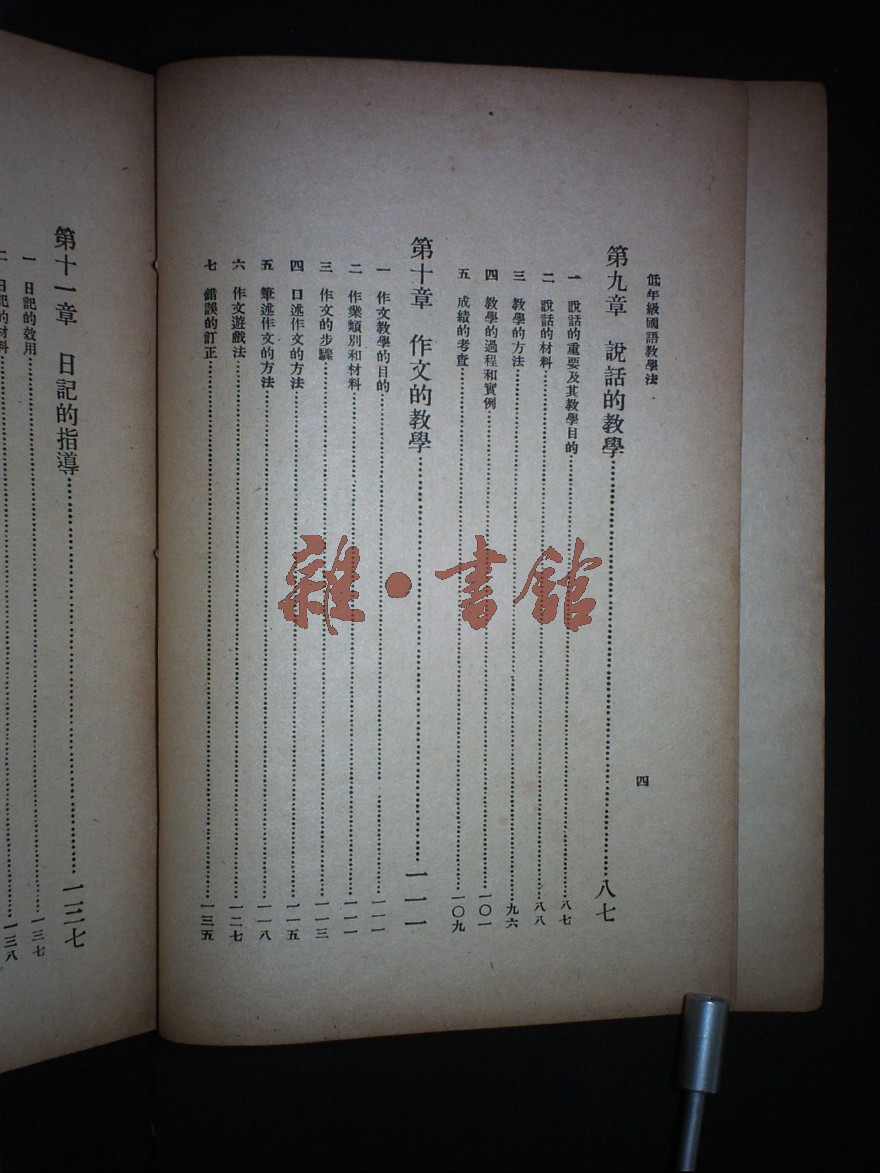 低年級國語教學法
四
第九章 說話的教學 八七
一 說話的重要及其教學目的 八七
二 說話的材料 八八
三 教學的方法 九六
四 教學的過程和實例 一〇一
五 成績的考查 一〇九
第十章 作文的教學 一一一
一 作文教學的目的 一一一
二 作業類別和材料 一一一
三 作文的步驟 一一三
四 口述作文的方法 一一五
五 筆述作文的方法 一一八
六 作文遊戲法 一二七
七 錯誤的訂正 一三五
第十一章 日記的指導 一三七
一 日記的效用 一三七
二 日記的材料 一三八
雜·書館